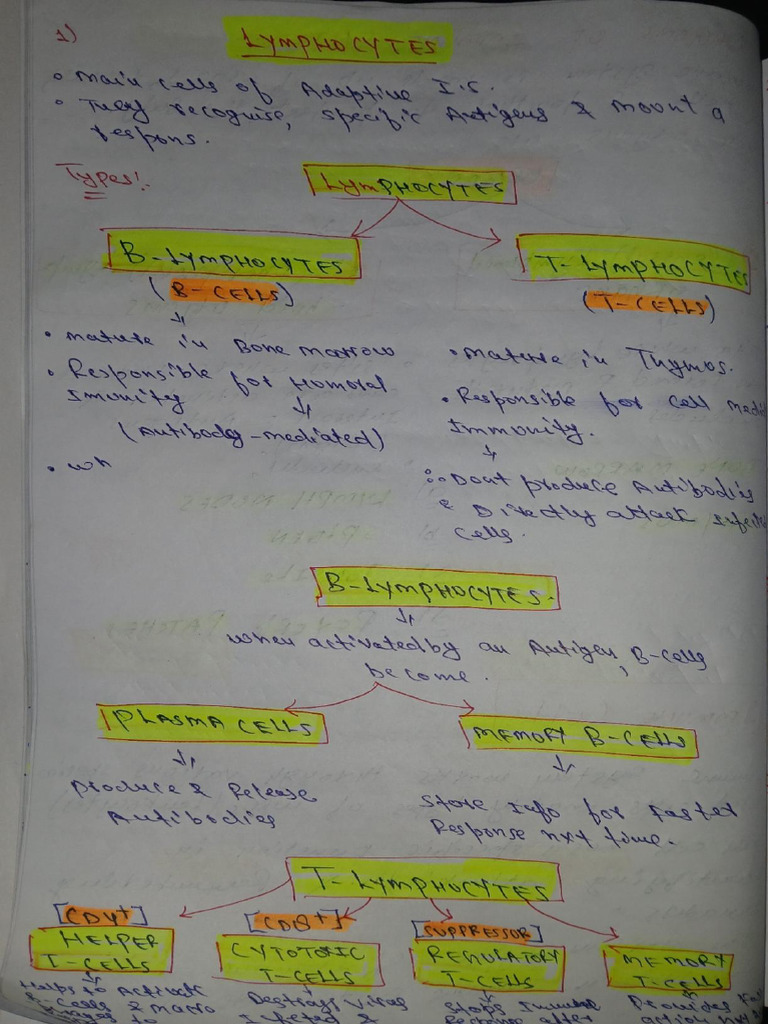 1)
LYMPHOCYTES
• Main cells of Adaptive I.S.
• They recognise, specific Antigens & mount a
respons.
Types:
LYMPHOCYTES
B-LYMPHOCYTES
T-LYMPHOCYTES
(B-CELLS)
(T-CELLS)
• mature in Bone marrow
• Responsible for Homoral
Immunity
(Antibody-mediated)
• wh
• mature in Thymos.
• Responsible for cell medi
Immunity.
∴ Dont produce Antibodies
& Directly attack infecte
cells.
B-LYMPHOCYTES.
when activated by an Antigen, B-cells
become.
PLASMA CELLS
MEMORY B-CELLS
produce & Release
Antibodies
Store Info for Faster
Response nxt time.
T-LYMPHOCYTES
[CD4+]
[CD8+]
[SUPPRESSOR]
HELPER
T-CELLS
CYTOTOXIC
T-CELLS
REGULATORY
T-CELLS
MEMORY
T-CELLS
Helps to Activate
B-cells & macro
phages to
Destroys virus
Infected &
Stops Immune
Response after
Provides
action nxt